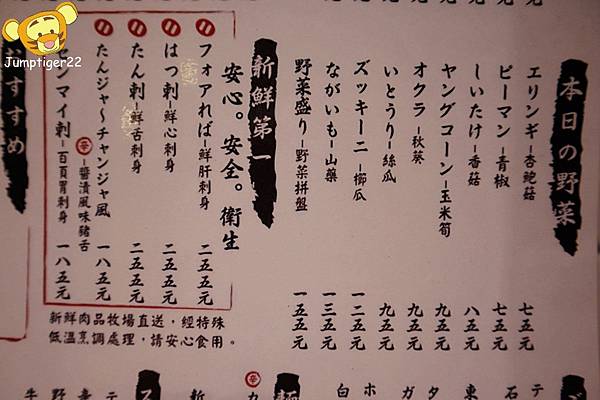 Jumptiger22
本日の野菜
エリンギ－杏鮑菇 七五元
ピーマン－青椒 七五元
しいたけ－香菇 八五元
ヤングコーン－玉米筍 九五元
オクラ－秋葵 九五元
いとうり－絲瓜 九五元
ズッキーニ－櫛瓜 一二五元
ながいも－山藥 一三五元
野菜盛り－野菜拼盤 一五五元
新鮮第一
安心。安全。衛生
フォアれば－鮮肝刺身 二五五元
はつ刺－鮮心刺身 二五五元
たん刺－鮮舌刺身 二五五元
たんジャ～チャンジャ風
辛－醬漬風味豬舌 一八五元
センマイ刺－百頁胃刺身 一八五元
新鮮肉品牧場直送，經特殊
低溫烹調處理，請安心食用。
おすすめ